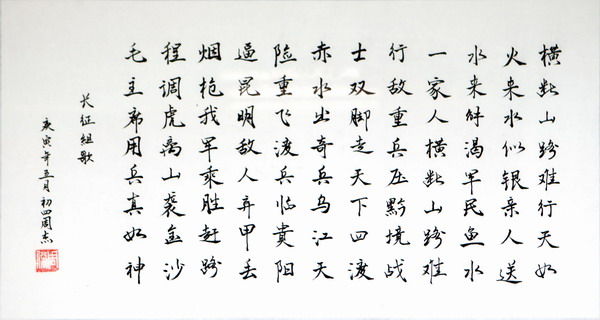 横断山路难行天如
火来水似银亲人送
水来解渴军民鱼水
一家人横断山路难
行敌重兵压黔境战
士双脚走天下四渡
赤水出奇兵乌江天
险重飞渡兵临贵阳
逼昆明敌人弃甲丢
烟枪我军乘胜赶路
程调虎离山袭金沙
毛主席用兵真如神
长征组歌
庚寅年五月初四周志